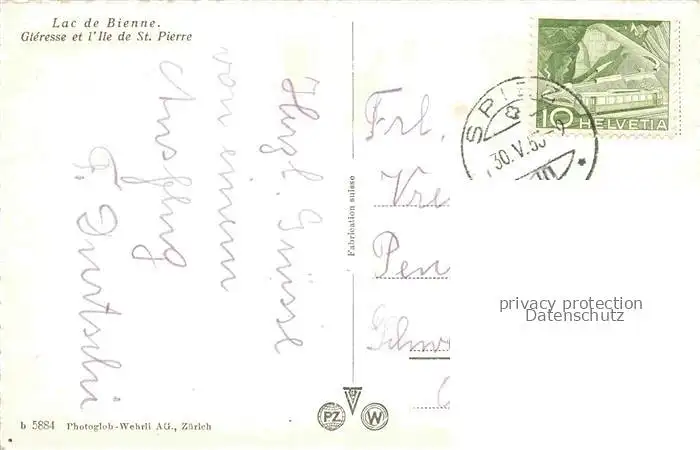 Lac de Bienne.
Gléresse et l'Ile de St. Pierre
Herzl. Grüsse
von einem
Ausflug
F. Durtschi
Fabrication suisse
10 HELVETIA
SPIEZ
30.V.53-9
Frl.
Vre
Pen
Schw
privacy protection
Datenschutz
PZ
W
b 5884 Photoglob-Wehrli AG., Zürich